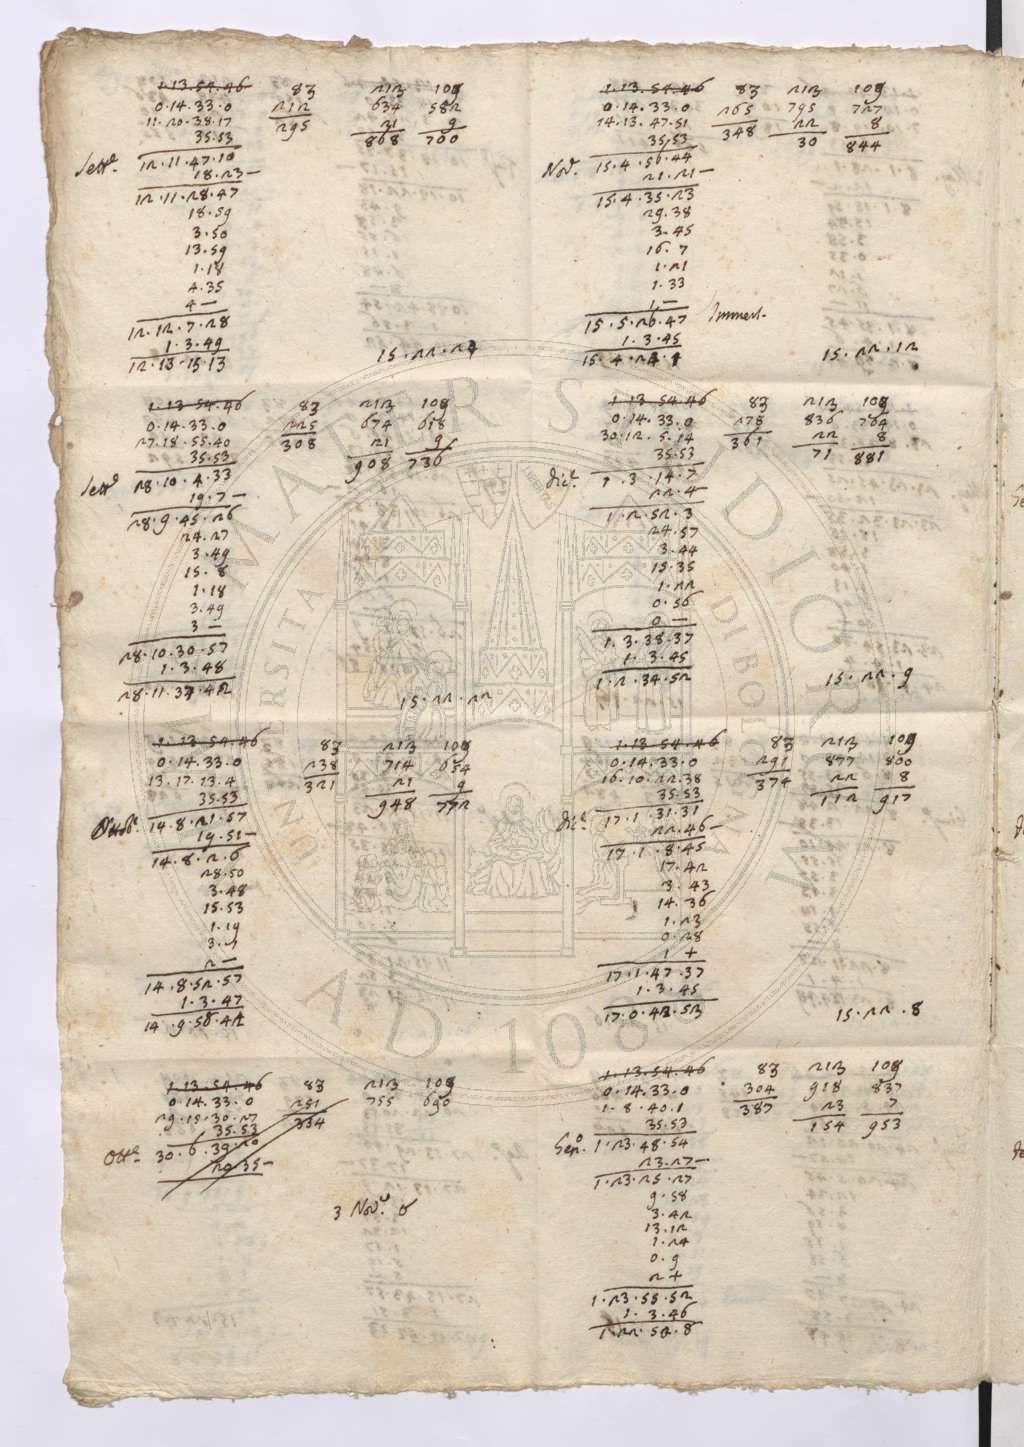 1.13.54.46 83 213 109
0.14.33.0 212 634 582
11.20.38.17 295 21 9
35.53 868 700
Sett.e 12.11.47.10
18.23 —
12.11.28.47
18.59
3.50
13.59
1.18
4.35
4 —
12.12.7.28
1.3.49
12.13.15.13
15.22.24
1.13.54.46 83 213 109
0.14.33.0 225 674 618
27.18.55.40 308 21 9
35.53 908 736
Sett.e 28.10.4.33
19.7 —
28.9.45.26
24.27
3.49
15.8
1.18
3.49
3 —
28.10.30.57
1.3.48
28.11.34.42
15.22.22
1.13.54.46 83 213 109
0.14.33.0 238 714 654
13.17.13.4 321 21 9
35.53 948 772
Ottob.e 14.8.21.57
19.51 —
14.8.2.6
28.50
3.48
15.53
1.19
3.9
2 —
14.8.52.57
1.3.47
14.9.56.42
1.13.54.46 83 213 109
0.14.33.0 251 755 690
29.15.30.27 334
35.53
Ott.e 30.6.39.20
20.35 —
3 Nov.e 6
1.13.54.46 83 213 109
0.14.33.0 265 795 727
14.13.47.51 348 22 8
35.53 30 844
Nov. 15.4.56.44
21.21 —
15.4.35.23
29.38
3.45
16.7
1.21
1.33
1 —
15.5.26.47 Immers.
1.3.45
15.4.24.1
15.22.12
1.13.54.46 83 213 109
0.14.33.0 278 836 764
30.12.5.14 361 22 8
35.53 71 881
Dic.e 1.3.14.7
22.4
1.2.52.3
24.57
3.44
15.35
1.22
0.56
0 —
1.3.38.37
1.3.45
1.2.34.52
15.22.9
1.13.54.46 83 213 109
0.14.33.0 291 877 800
16.10.22.38 374 22 8
35.53 112 917
Dic.e 17.1.31.31
22.46 —
17.1.8.45
17.42
3.43
14.36
1.23
0.28
1 +
17.1.47.37
1.3.45
17.0.42.53
15.22.8
1.13.54.46 83 213 109
0.14.33.0 304 918 837
1.8.40.1 387 23 7
35.53 154 953
Gen.o 1.23.48.54
23.27 —
1.23.25.27
9.58
3.42
13.12
1.24
0.9
2 +
1.23.55.52
1.3.46
1.22.52.8
ALMA MATER STUDIORUM
UNIVERSITÀ DI BOLOGNA
A.D. 1088